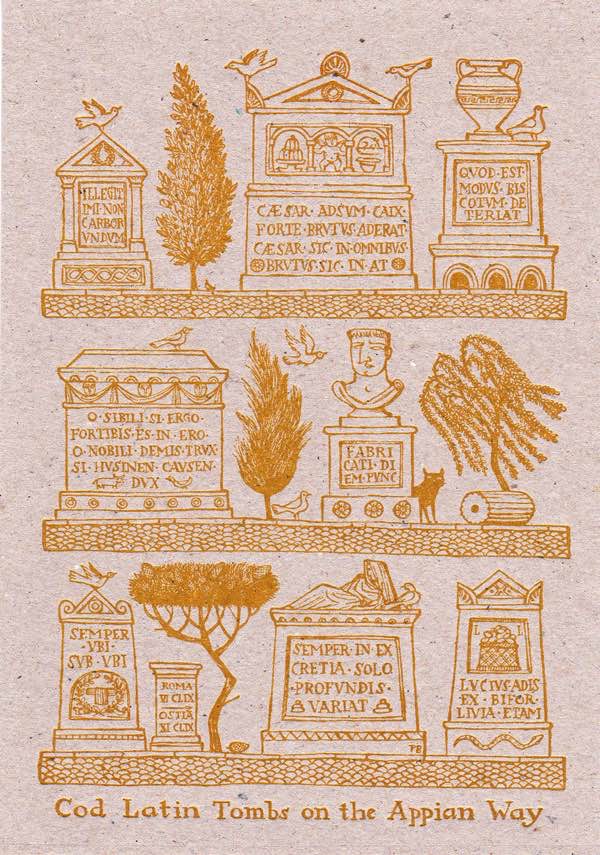 ILLEGIT
IMI·NON
CARBOR
VNDVM
CÆSAR·ADSVM·CAIX·
FORTE·BRVTVS·ADERAT·
CÆSAR·SIC·IN·OMNIBVS·
BRVTVS·SIC·IN·AT
QVOD·EST·
MODVS·BIS
COTVM·DE
TERIAT
O·SIBILI·SI·ERGO·
FORTIBIS·ES·IN·ERO·
O·NOBILI·DEMIS·TRVX·
SI·HVSINEN·CAVSEN·
DVX
FABRI
CATI·DI
EM·PVNC
SEMPER
·VBI·
SVB·VBI
ROMA
VI CLIX
OSTIA
XI CLIX
SEMPER·IN·EX
CRETIA·SOLO·
·PROFVNDIS·
VARIAT
PB
L I
LVCIVS·ADIS
EX·BIFOR
LIVIA·ETAM
Cod Latin Tombs on the Appian Way